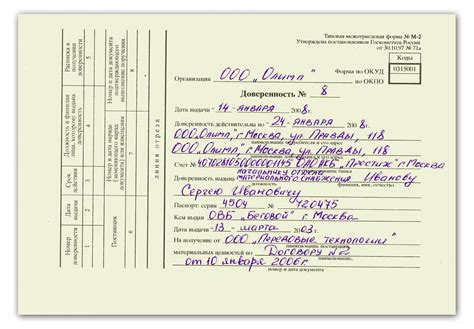 Типовая межотраслевая форма № М-2
Утверждена постановлением Госкомстата России
от 30.10.97 № 71а
Коды
Форма по ОКУД 0315001
Организация ООО „Олимп" по ОКПО
Доверенность № 8
Дата выдачи 14 января 2008 г.
Доверенность действительна по 24 января 2008 г.
ООО„Олимп", г. Москва, ул. Правды, 118
наименование потребителя и его адрес
ООО „Олимп", г. Москва, ул. Правды, 118
Счет № КБ „Престиж" г. Москва
Доверенность выдана начальнику отдела материального снабжения Иванову
должность фамилия, имя, отчество
Сергею Ивановичу
Паспорт: серия 4504 № 120475
Кем выдан ОВБ „Беговой" г. Москва
Дата выдачи 13 марта 2003 г.
На получение от ООО „Передовые технологии"
наименование поставщика
материальных ценностей по Договору №2
от 10 января 2006 г.
номер и дата документа
линия отреза
Номер доверенности
Дата выдачи
Срок действия
Должность и фамилия лица, которому выдана доверенность
Расписка в получении доверенности
1
2
3
4
5
Поставщик
Номер и дата наряда (заменяющего наряд документа) или извещения
Номер и дата документа, подтверждающего выполнение поручения
6
7
8